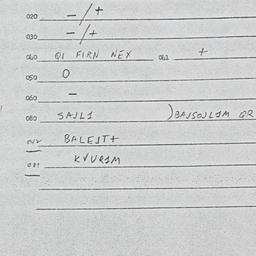 020 -/+
030 -/+
040 QI FIRN NEX 041 +
050 0
060 -
080 SAJL1 )BAJSOJL1M QR
BALEJT+
081 KVUR1M